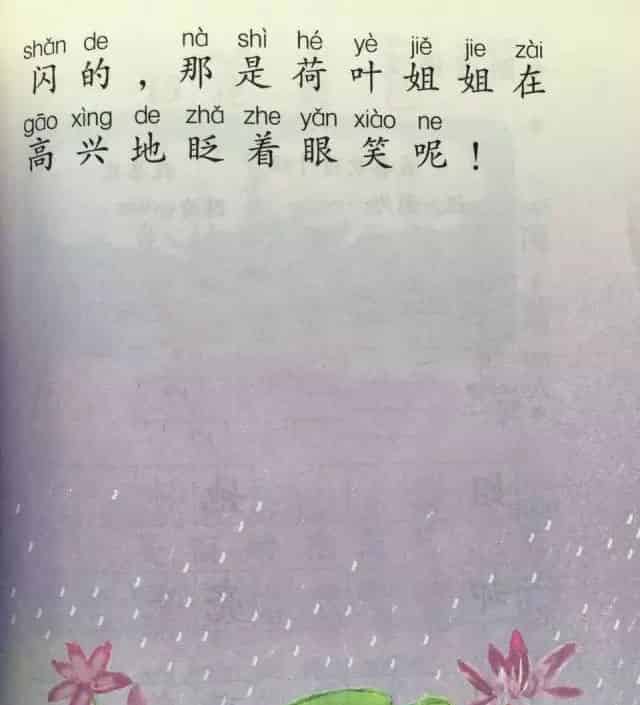 shǎn de nà shì hé yè jiě jie zài
闪的，那是荷叶姐姐在
gāo xìng de zhǎ zhe yǎn xiào ne
高兴地眨着眼笑呢！